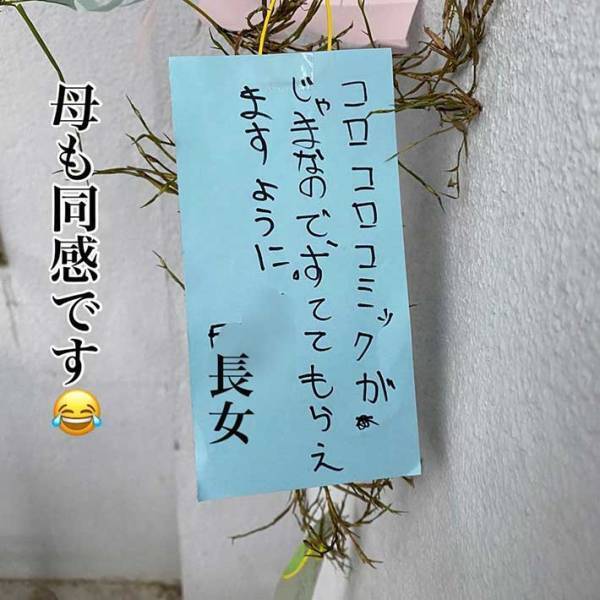 母も同感です😂
コロコロコミックが
じゃまなので、すててもらえ
ますように。
F
長女